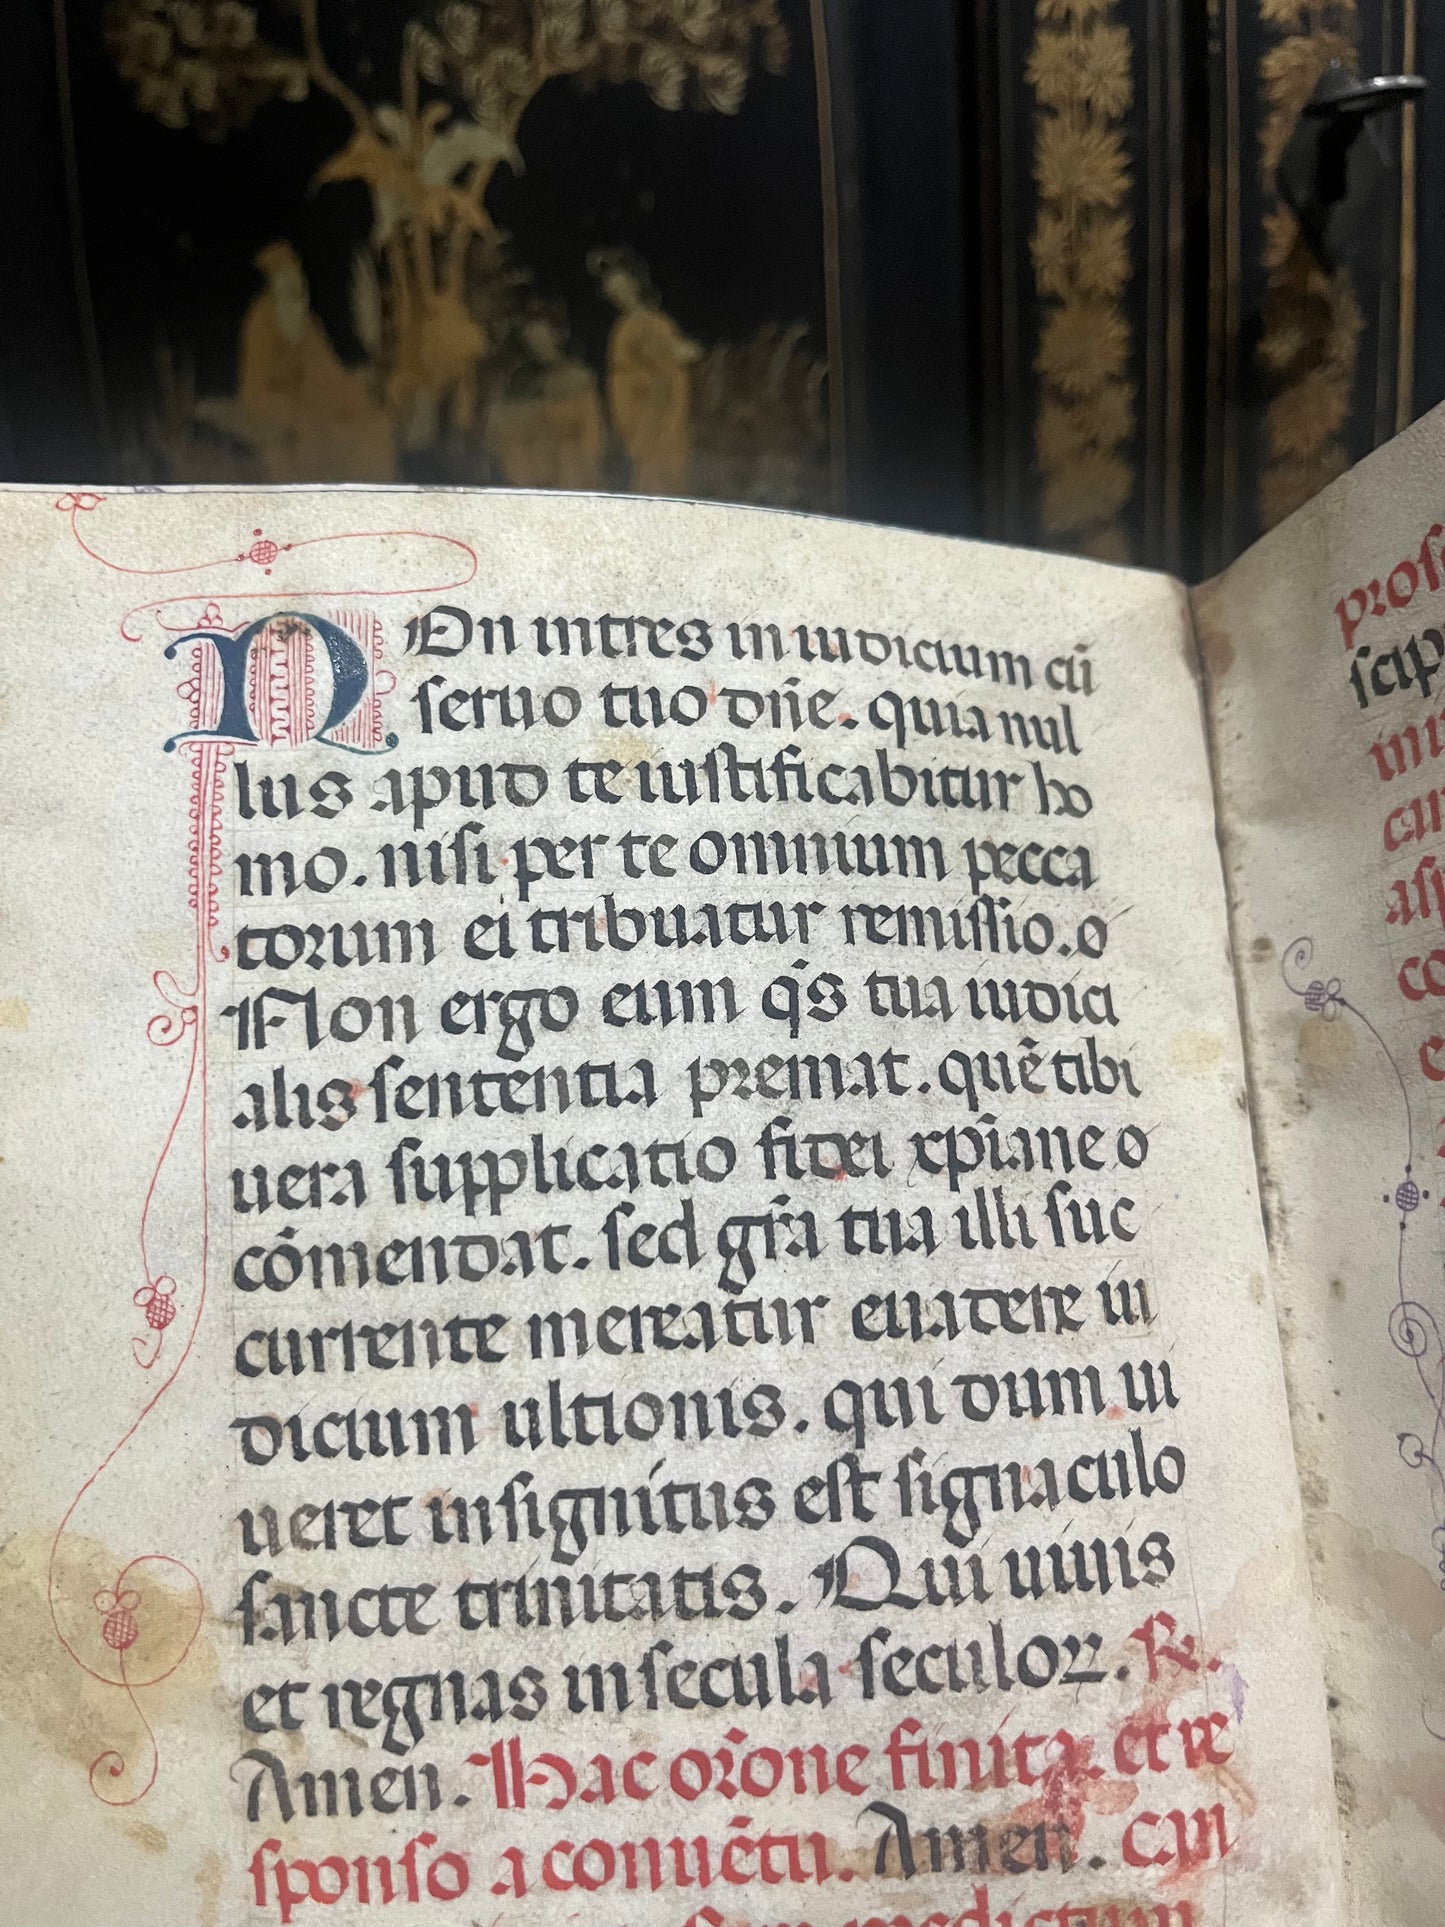 NOn intres in iudicium cū
seruo tuo dn̄e. quia nul
lus apud te iustificabitur ho
mo. nisi per te omnium pecca
torum ei tribuatur remissio. o
Non ergo eum q̄s tua iudici
alis sententia premat. quē tibi
uera supplicatio fidei xp̄iane o
cōmendat. sed gr̄a tua illi suc
currente mereatur euadere iu
dicium ultionis. qui dum ui
ueret insignitus est signaculo
sancte trinitatis. Qui uiuis
et regnas in secula seculoꝝ. R.
Amen. Hac or̄one finita. et re
sponso a conuētu. Amen. can
medictum
prof
scip